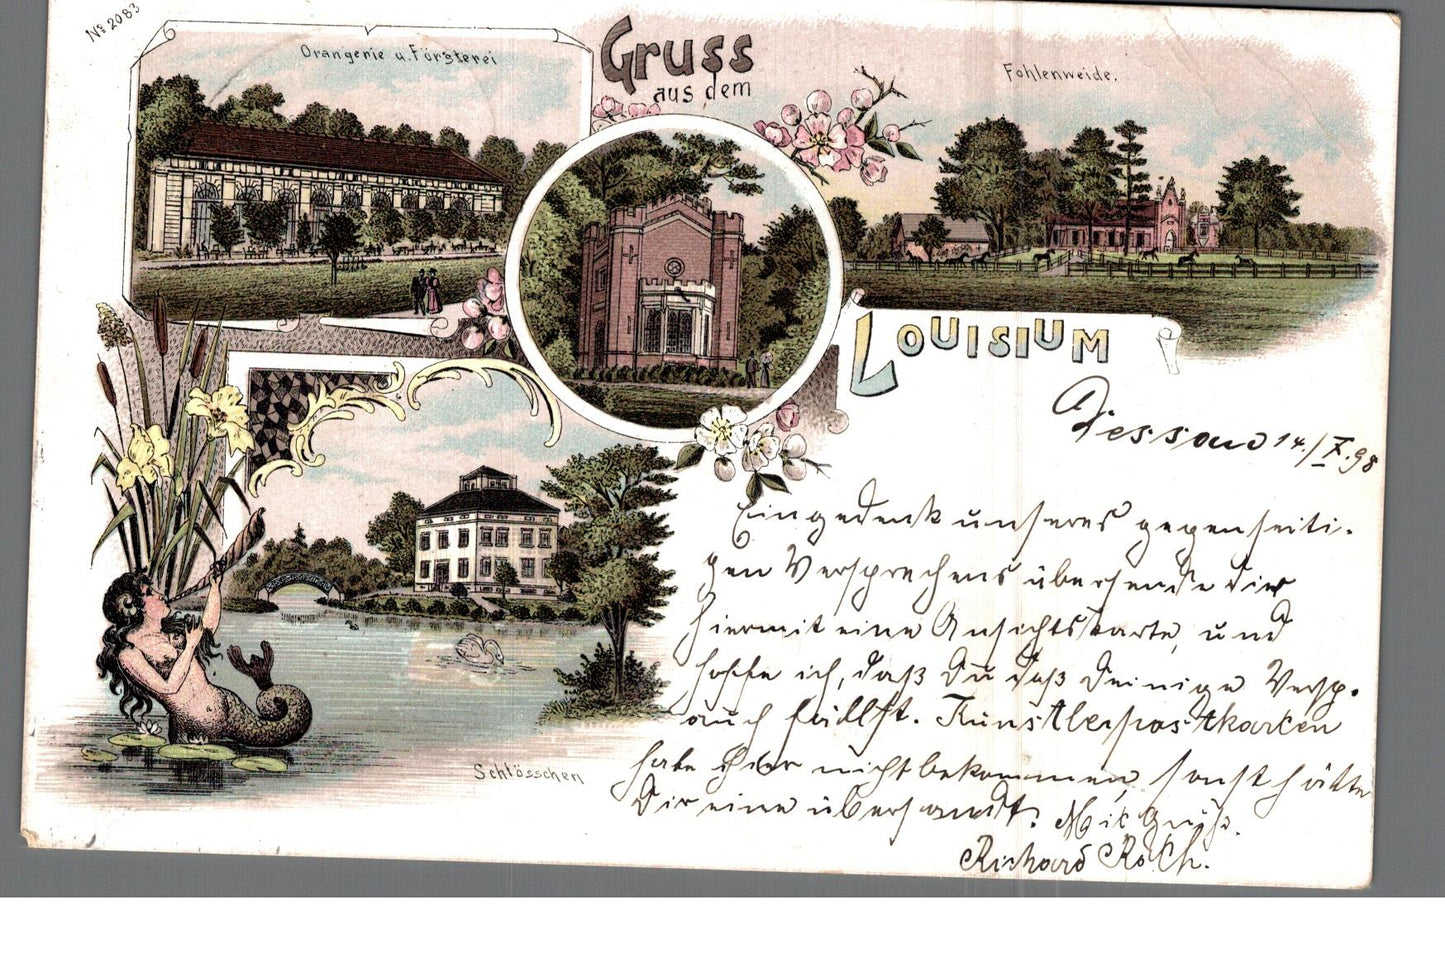 No 2083
Orangerie u. Försterei
Gruss
aus dem
Fohlenweide.
LOUISIUM
Dessau 14./X.98
Eingedenk unseres gegenseiti-
gen Versprechens übersende Dir
hiermit eine Ansichtskarte, und
hoffe ich, daß Du daß Deinige Versp.
auch hällst. Künstlerpostkarten
habe hier nicht bekommen, sonst hätte
Dir eine übersandt. Mit Gruß.
Richard
Schlösschen